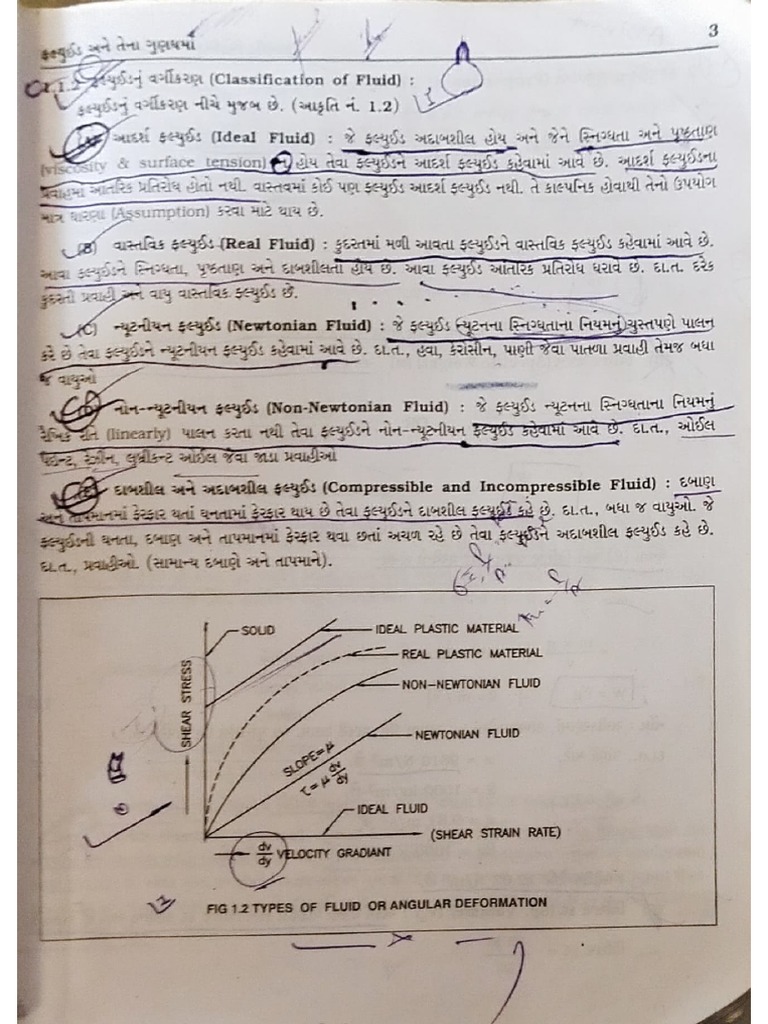 ફલ્યુઈડ અને તેના ગુણધર્મો
3
1.1.2 ફલ્યુઈડનું વર્ગીકરણ (Classification of Fluid) :
ફલ્યુઈડનું વર્ગીકરણ નીચે મુજબ છે. (આકૃતિ નં. 1.2)
(A) આદર્શ ફલ્યુઈડ (Ideal Fluid) : જે ફલ્યુઈડ અદાબશીલ હોય અને જેને સ્નિગ્ધતા અને પૃષ્ઠતાણ
(viscosity & surface tension) ન હોય તેવા ફલ્યુઈડને આદર્શ ફલ્યુઈડ કહેવામાં આવે છે. આદર્શ ફલ્યુઈડના
પ્રવાહમાં આંતરિક પ્રતિરોધ હોતો નથી. વાસ્તવમાં કોઈ પણ ફલ્યુઈડ આદર્શ ફલ્યુઈડ નથી. તે કાલ્પનિક હોવાથી તેનો ઉપયોગ
માત્ર ધારણા (Assumption) કરવા માટે થાય છે.
(B) વાસ્તવિક ફલ્યુઈડ (Real Fluid) : કુદરતમાં મળી આવતા ફલ્યુઈડને વાસ્તવિક ફલ્યુઈડ કહેવામાં આવે છે.
આવા ફલ્યુઈડને સ્નિગ્ધતા, પૃષ્ઠતાણ અને દાબશીલતા હોય છે. આવા ફલ્યુઈડ આંતરિક પ્રતિરોધ ધરાવે છે. દા.ત. દરેક
કુદરતી પ્રવાહી અને વાયુ વાસ્તવિક ફલ્યુઈડ છે.
(C) ન્યૂટનીયન ફલ્યુઈડ (Newtonian Fluid) : જે ફલ્યુઈડ ન્યૂટનના સ્નિગ્ધતાના નિયમનું ચુસ્તપણે પાલન
કરે છે તેવા ફલ્યુઈડને ન્યૂટનીયન ફલ્યુઈડ કહેવામાં આવે છે. દા.ત., હવા, કેરોસીન, પાણી જેવા પાતળા પ્રવાહી તેમજ બધા
જ વાયુઓ
(D) નોન-ન્યૂટનીયન ફલ્યુઈડ (Non-Newtonian Fluid) : જે ફલ્યુઈડ ન્યૂટનના સ્નિગ્ધતાના નિયમનું
રૈખિક રીતે (linearly) પાલન કરતા નથી તેવા ફલ્યુઈડને નોન-ન્યૂટનીયન ફલ્યુઈડ કહેવામાં આવે છે. દા.ત., ઓઈલ
પેઈન્ટ, રેઝીન, લુબ્રીકન્ટ ઓઈલ જેવા જાડા પ્રવાહીઓ
(E) દાબશીલ અને અદાબશીલ ફલ્યુઈડ (Compressible and Incompressible Fluid) : દબાણ
અને તાપમાનમાં ફેરફાર થતાં ઘનતામાં ફેરફાર થાય છે તેવા ફલ્યુઈડને દાબશીલ ફલ્યુઈડ કહે છે. દા.ત., બધા જ વાયુઓ. જે
ફલ્યુઈડની ઘનતા, દબાણ અને તાપમાનમાં ફેરફાર થવા છતાં અચળ રહે છે તેવા ફલ્યુઈડને અદાબશીલ ફલ્યુઈડ કહે છે.
દા.ત., પ્રવાહીઓ. (સામાન્ય દબાણે અને તાપમાને).
SOLID
IDEAL PLASTIC MATERIAL
REAL PLASTIC MATERIAL
NON-NEWTONIAN FLUID
NEWTONIAN FLUID
SHEAR STRESS
SLOPE=μ
τ = μ dv/dy
IDEAL FLUID
(SHEAR STRAIN RATE)
dv/dy VELOCITY GRADIANT
FIG 1.2 TYPES OF FLUID OR ANGULAR DEFORMATION